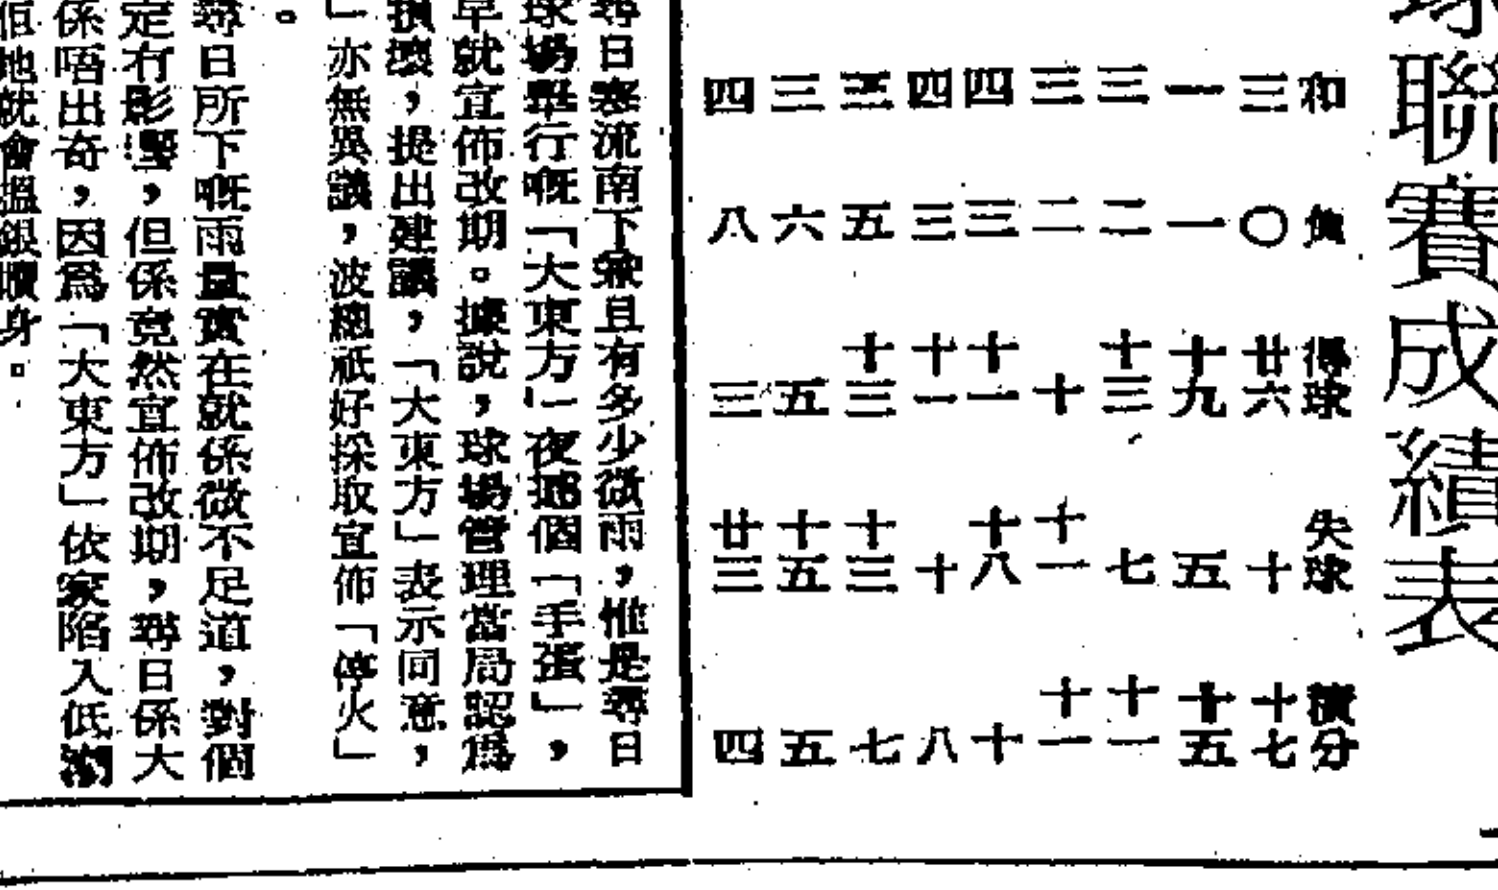 球聯賽成績表
和 負 得球 失球 積分
三 〇 廿六 十 十七
一 一 十九 五 十五
三 二 十三 七 十一
三 二 十 十一 十一
四 三 十一 十八 十
四 三 十一 十 八
三 五 十三 十三 七
三 六 五 十五 五
四 八 三 廿三 四
尋日寒流南下兼且有多少微雨，惟是尋日
球場舉行嘅「大東方」夜撼個「手蛋」，
早就宣佈改期。據說，球場管理當局認爲
損壞，提出建議，「大東方」表示同意，
」亦無異議，波總祇好採取宣佈「停火」
。
尋日所下嘅雨量實在就係微不足道，對個
定有影響，但係竟然宣佈改期，尋日係大
係唔出奇，因爲「大東方」依家陷入低潮
佢地就會搵銀嚫身。